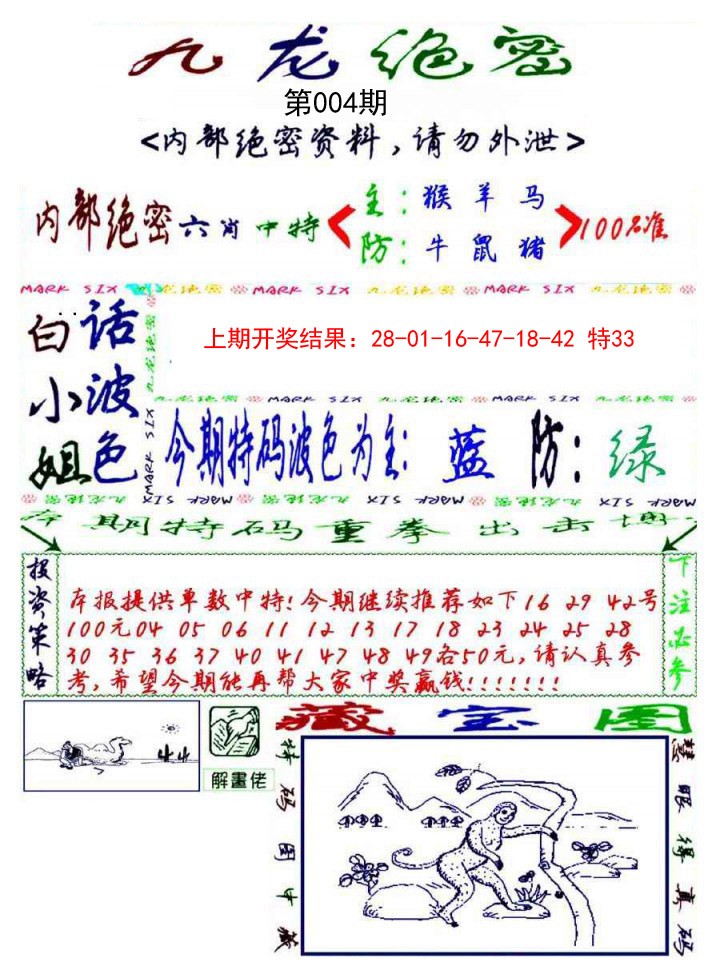 九龙绝密
第004期
<内部绝密资料,请勿外泄>
内部绝密六肖中特
主:猴 羊 马
防:牛 鼠 猪
100%准
MARK SIX 九龙绝密 MARK SIX 九龙绝密 MARK SIX 九龙绝密
白话
小波
姐色
九龙绝密
MARK SIX
上期开奖结果：28-01-16-47-18-42 特33
九龙绝密 MARK SIX 九龙绝密 MARK SIX 九龙绝密
今期特码波色为主: 蓝 防: 绿
九龙绝密 MARK SIX 九龙绝密 MARK SIX 九龙绝密 MARK SIX
本期特码重拳出击博
投资策略
本报提供单数中特!今期继续推荐如下16 29 42号
100元04 05 06 11 12 13 17 18 23 24 25 28
30 35 36 37 40 41 47 48 49各50元,请认真参
考,希望今期能再帮大家中奖赢钱!!!!!!!
下注必参
解畫佬
藏宝图
特码图中藏
慧眼得真码